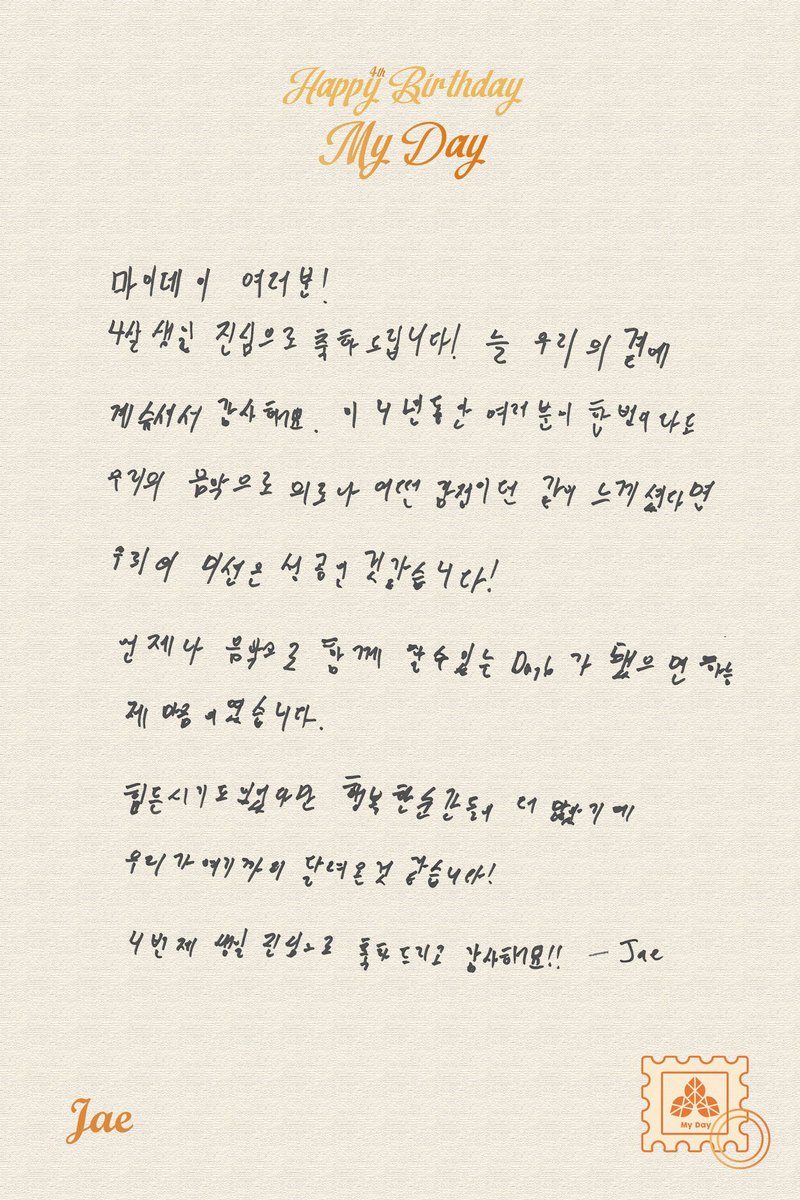 Happy 4th Birthday
My Day
마이데이 여러분!
4살 생일 진심으로 축하드립니다! 늘 우리의 곁에
계슈셔서 감사해요. 이 4년동안 여러분이 한번이라도
우리의 음악으로 위로나 어떤 감정이던 같이 느끼셨다면
우리의 미션은 성공인 것 같습니다!
언제나 음악으로 함께 할 수 있는 Day6가 됐으면 하는
제 마음이였습니다.
힘든시기도 있었다만 행복한순간들이 더 많았기에
우리가 여기까지 달려온것 같습니다!
4번째 생일 진심으로 축하드리고 감사해요!! - Jae
Jae
My Day